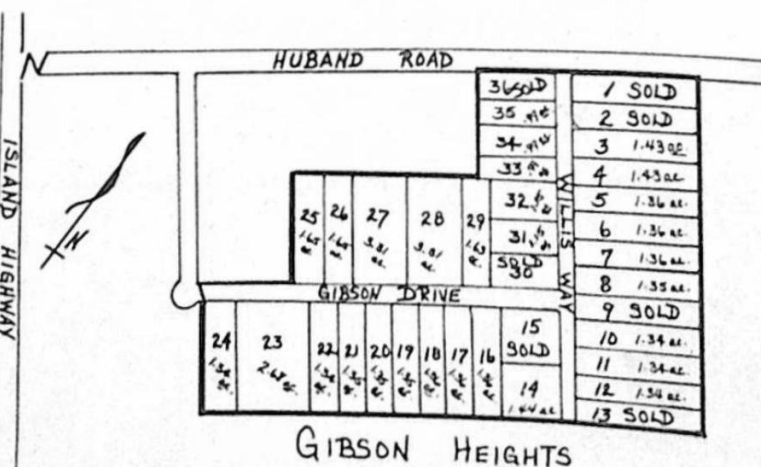 HUBAND ROAD
ISLAND HIGHWAY
N
36 SOLD
35
34
33
32
31
SOLD
30
WILLIS WAY
1 SOLD
2 SOLD
3 1.43 ac.
4 1.43 ac.
5 1.36 ac.
6 1.36 ac.
7 1.36 ac.
8 1.35 ac.
9 SOLD
10 1.34 ac.
11 1.34 ac.
12 1.34 ac.
13 SOLD
25
1.65
ac.
26
1.65
ac.
27
3.81
ac.
28
3.81
ac.
29
1.63
ac.
GIBSON DRIVE
24
ac.
23
2.68 ac.
22
ac.
21
ac.
20
ac.
19
ac.
18
ac.
17
ac.
16
ac.
15
SOLD
14
1.44 ac
GIBSON HEIGHTS